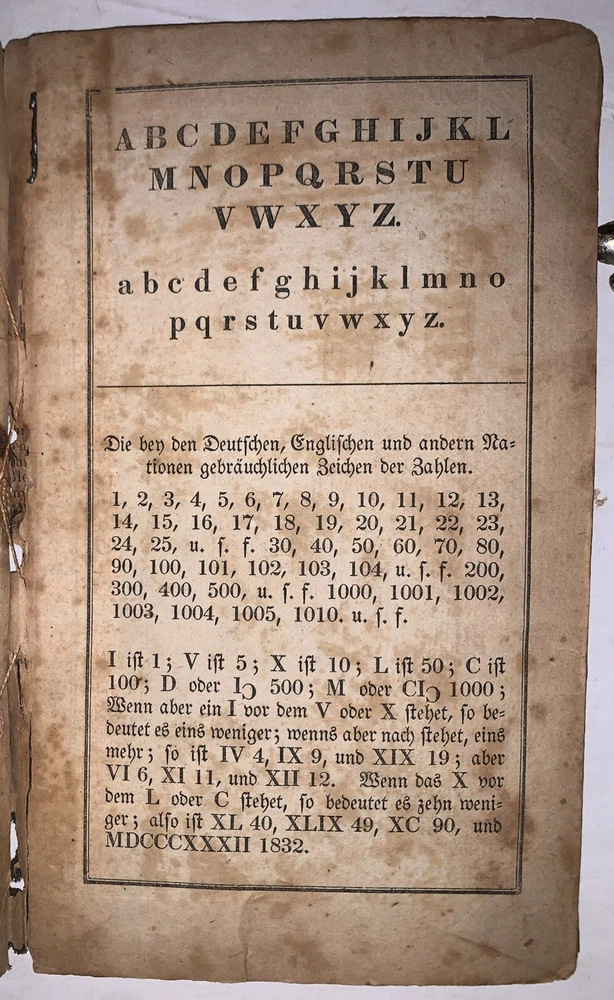 A B C D E F G H I J K L
M N O P Q R S T U
V W X Y Z.
a b c d e f g h i j k l m n o
p q r s t u v w x y z.
Die bey den Deutschen, Englischen und andern Na=
tionen gebräuchlichen Zeichen der Zahlen.
1, 2, 3, 4, 5, 6, 7, 8, 9, 10, 11, 12, 13,
14, 15, 16, 17, 18, 19, 20, 21, 22, 23,
24, 25, u. s. f. 30, 40, 50, 60, 70, 80,
90, 100, 101, 102, 103, 104, u. s. f. 200,
300, 400, 500, u. s. f. 1000, 1001, 1002,
1003, 1004, 1005, 1010. u. s. f.
I ist 1; V ist 5; X ist 10; L ist 50; C ist
100; D oder IↃ 500; M oder CIↃ 1000;
Wenn aber ein I vor dem V oder X stehet, so be=
deutet es eins weniger; wenns aber nach stehet, eins
mehr; so ist IV 4, IX 9, und XIX 19; aber
VI 6, XI 11, und XII 12. Wenn das X vor
dem L oder C stehet, so bedeutet es zehn weni=
ger; also ist XL 40, XLIX 49, XC 90, und
MDCCCXXXII 1832.